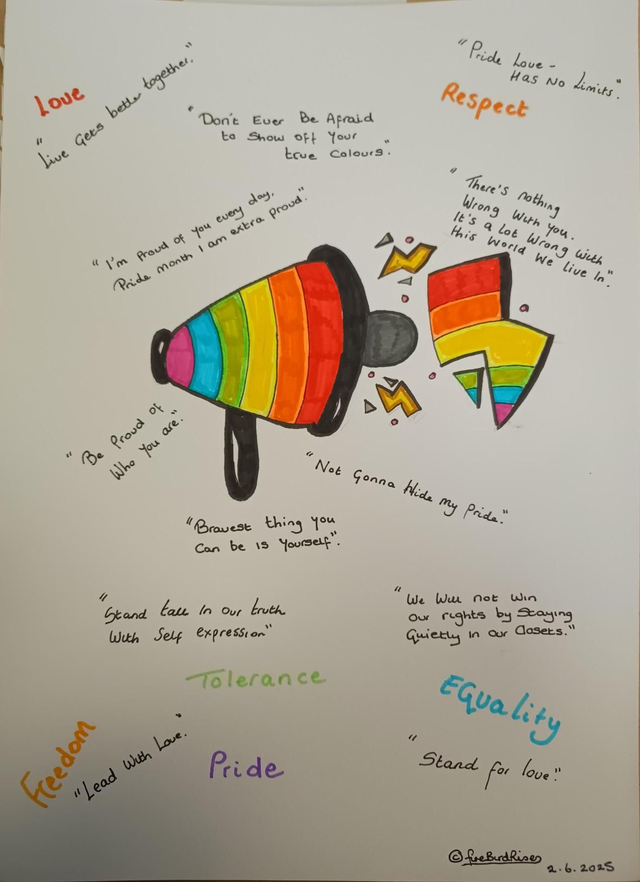 Love
"Live Gets better together."
"Pride Love -
Has No Limits".
Respect
"Don't Ever Be Afraid
to Show off Your
true Colours."
"There's nothing
Wrong With you.
It's a lot Wrong with
this World We live In".
"I'm Proud of you every day,
Pride month I am extra proud."
"Be Proud of
Who You are."
"Not Gonna Hide my Pride."
"Bravest thing you
Can be is Yourself".
"Stand tall In our truth
With Self expression"
"We Will not Win
our rights by Staying
Quietly In our Closets."
Tolerance
EQuality
Freedom
"Lead With Love."
Pride
"Stand for love."
©fireBirdRises
2.6.2025